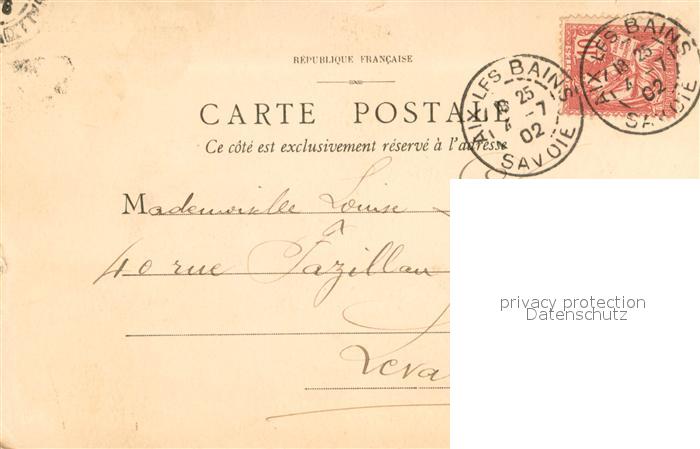 RÉPUBLIQUE FRANÇAISE
CARTE POSTALE
Ce côté est exclusivement réservé à l'adresse
AIX-LES-BAINS
18 25
4 -7
02
SAVOIE
10
AIX-LES-BAINS
18 25
4 -7
02
SAVOIE
Mademoiselle Louise
à
40 rue Fazillau
Leva
privacy protection
Datenschutz